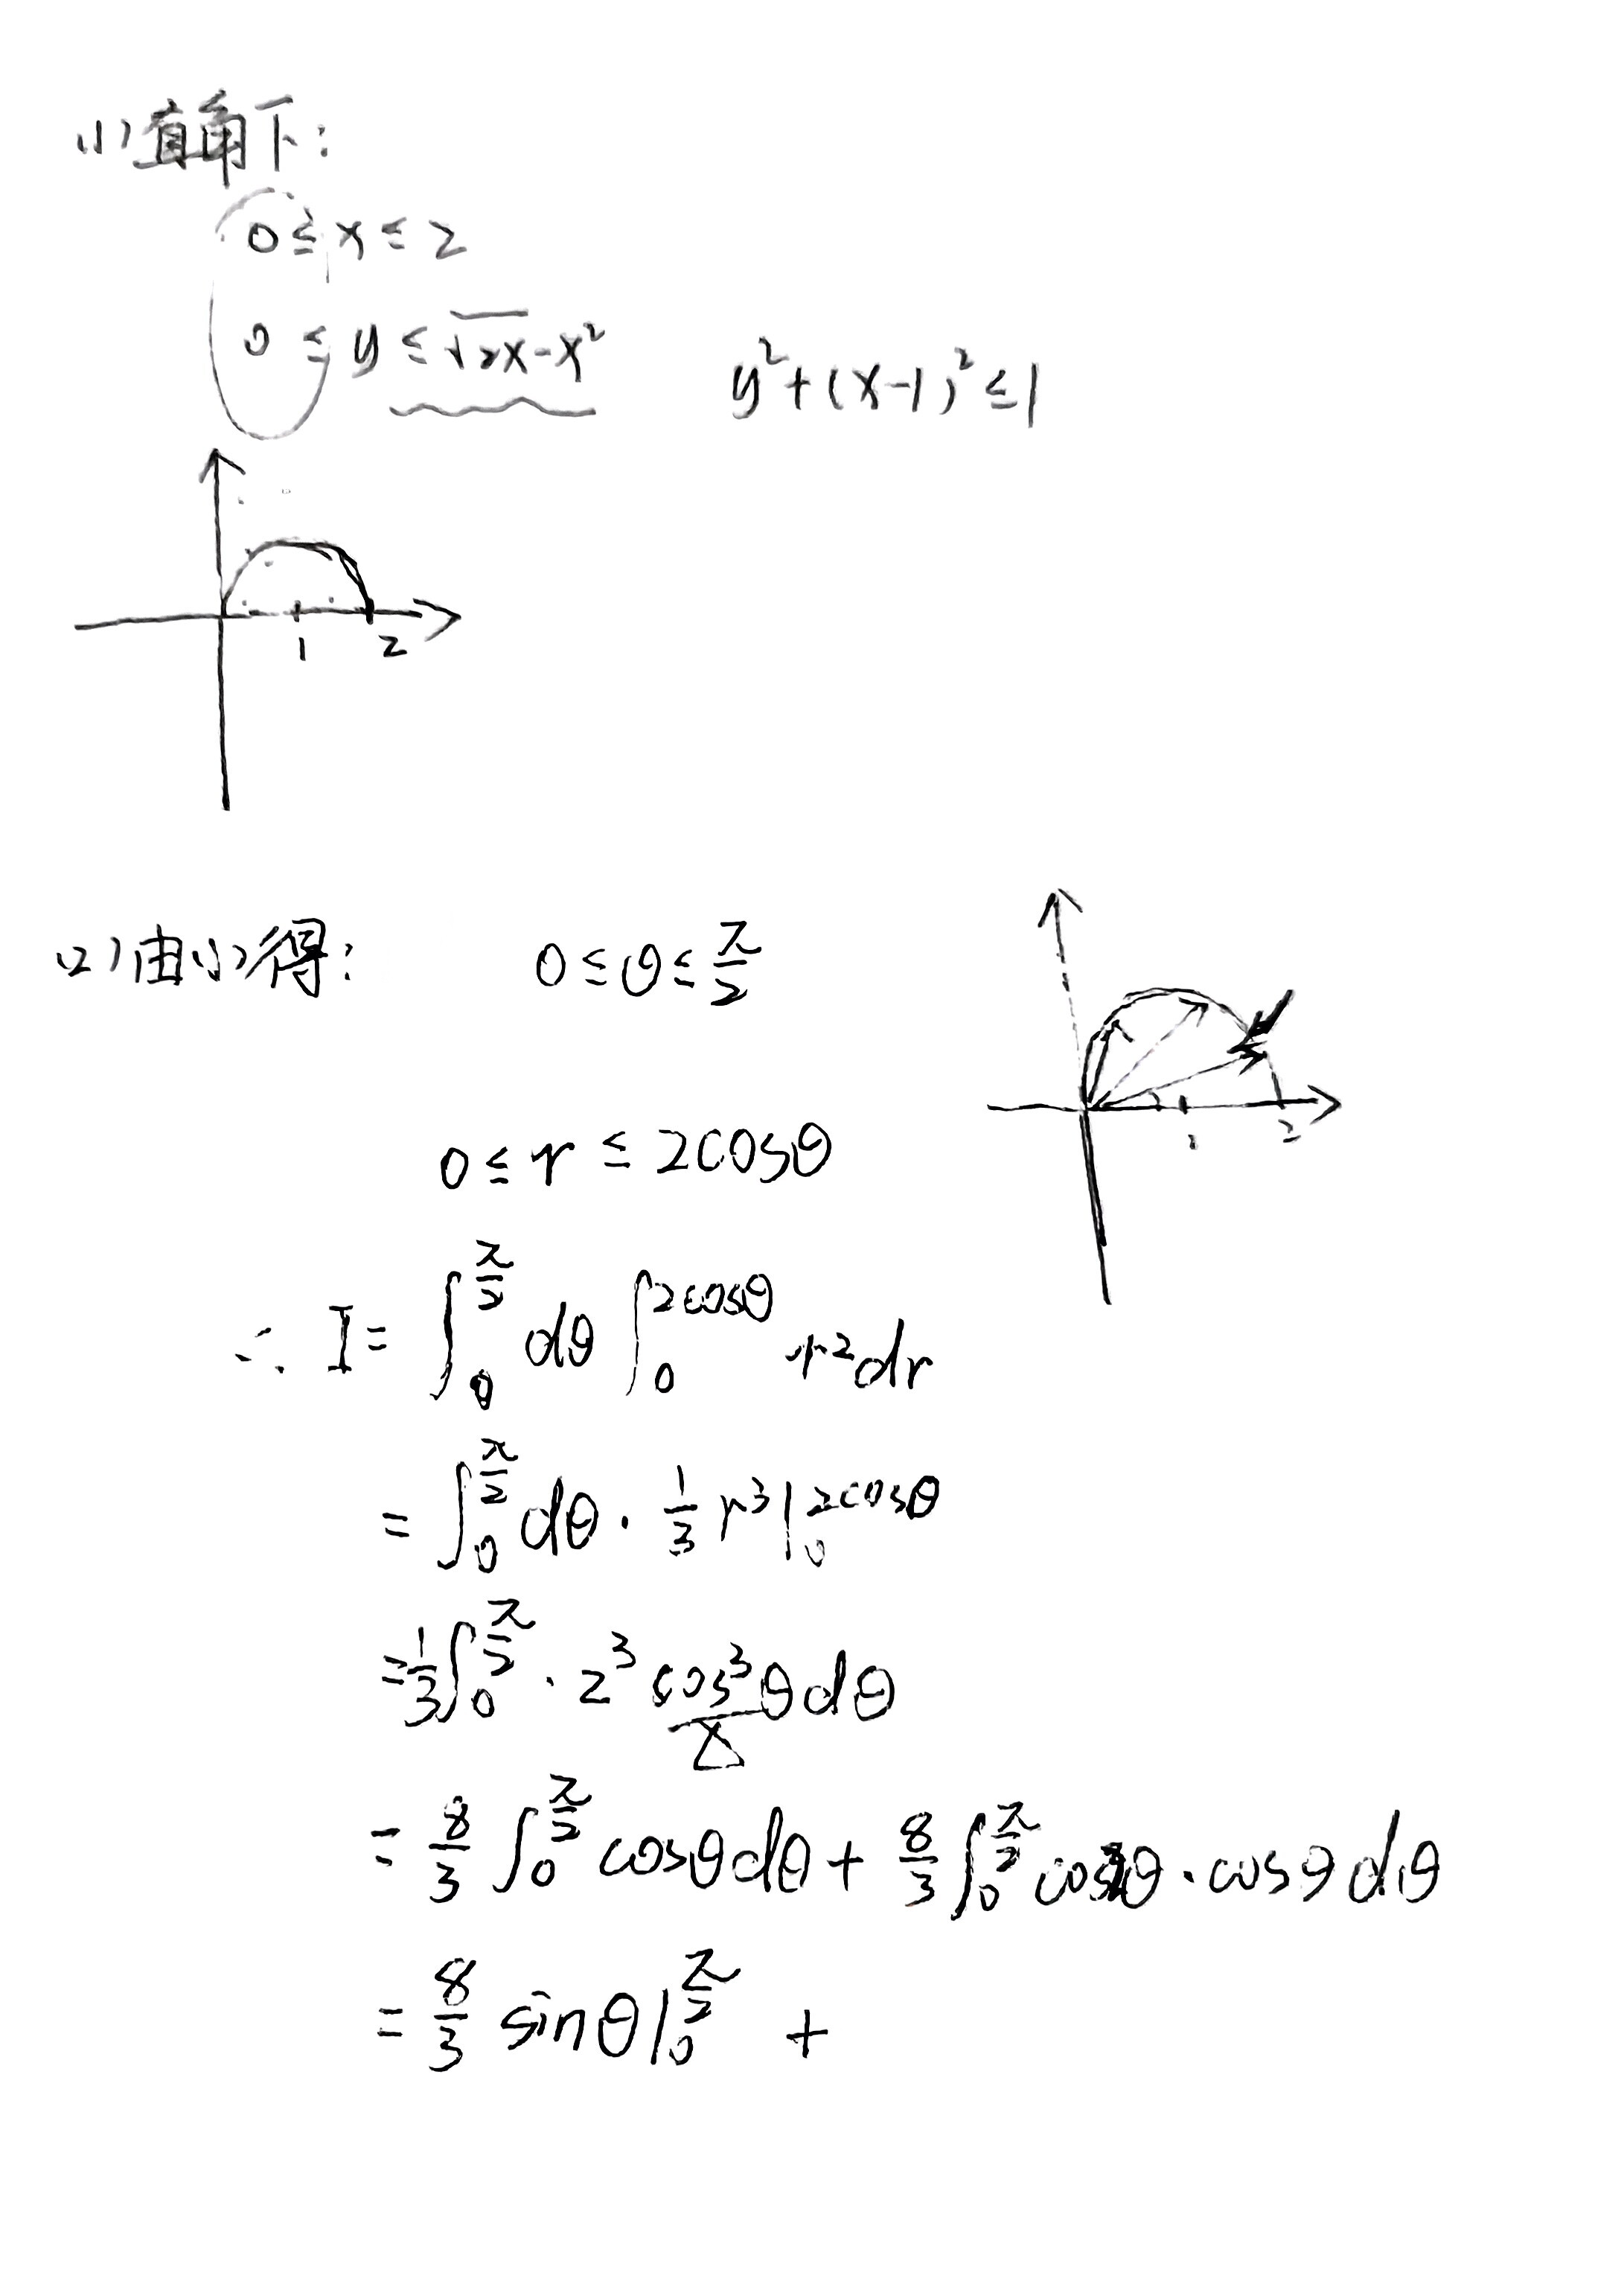 (1)直角下:
0 ≤ x ≤ 2
0 ≤ y ≤ √2x-x² y²+(x-1)² ≤ 1
1 2
(2)由(1)得: 0 ≤ θ ≤ π/2
1 2
0 ≤ r ≤ 2cosθ
∴ I = ∫₀^(π/2) dθ ∫₀^(2cosθ) r² dr
= ∫₀^(π/2) dθ · 1/3 r³ |₀^(2cosθ)
= 1/3 ∫₀^(π/2) · 2³ cos³θ dθ
= 8/3 ∫₀^(π/2) cosθ dθ + 8/3 ∫₀^(π/2) · cosθ dθ
= 8/3 sinθ |₀^(π/2) +